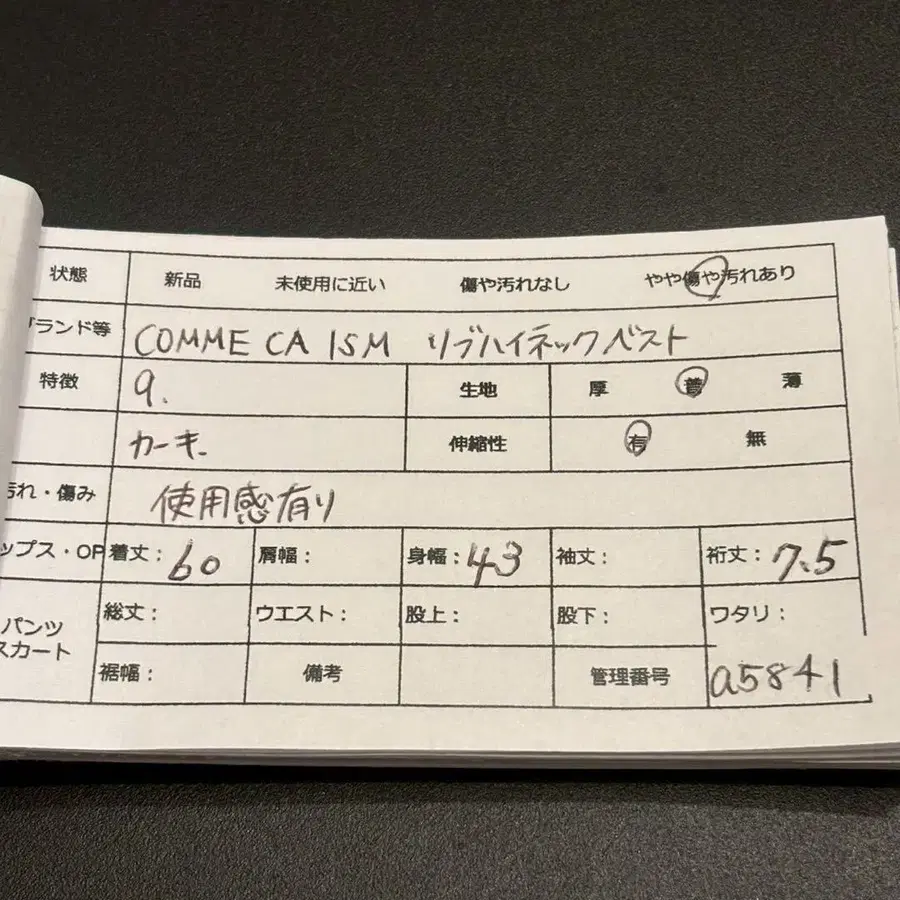 状態 新品 未使用に近い 傷や汚れなし やや傷や汚れあり
ランド等 COMME CA ISM リブハイネックベスト
特徴 9. 生地 厚 普 薄
カーキ. 伸縮性 有 無
汚れ・傷み 使用感有り
ップス・OP 着丈: 60 肩幅: 身幅: 43 袖丈: 裄丈: 7.5
パンツ スカート 総丈: ウエスト: 股上: 股下: ワタリ:
裾幅: 備考 管理番号 a5841